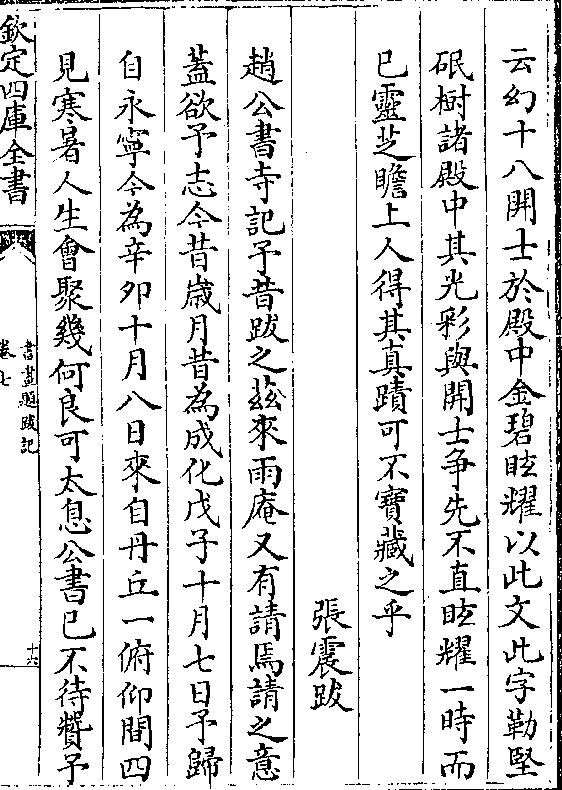 云幻十八開士於殿中金碧眩耀以此文此字勒堅
珉樹諸殿中其光彩與開士争先不直眩耀一時而
已靈芝瞻上人得其真蹟可不寶藏之乎
張震跋
趙公書寺記予昔跋之茲來雨庵又有請焉請之意
蓋欲予志今昔歲月昔為成化戊子十月七日予歸
自永寧今為辛卯十月八日來自丹丘一俯仰間四
見寒暑人生會聚幾何良可太息公書已不待贊予
欽定四庫全書
書畫題跋記
卷七
十六